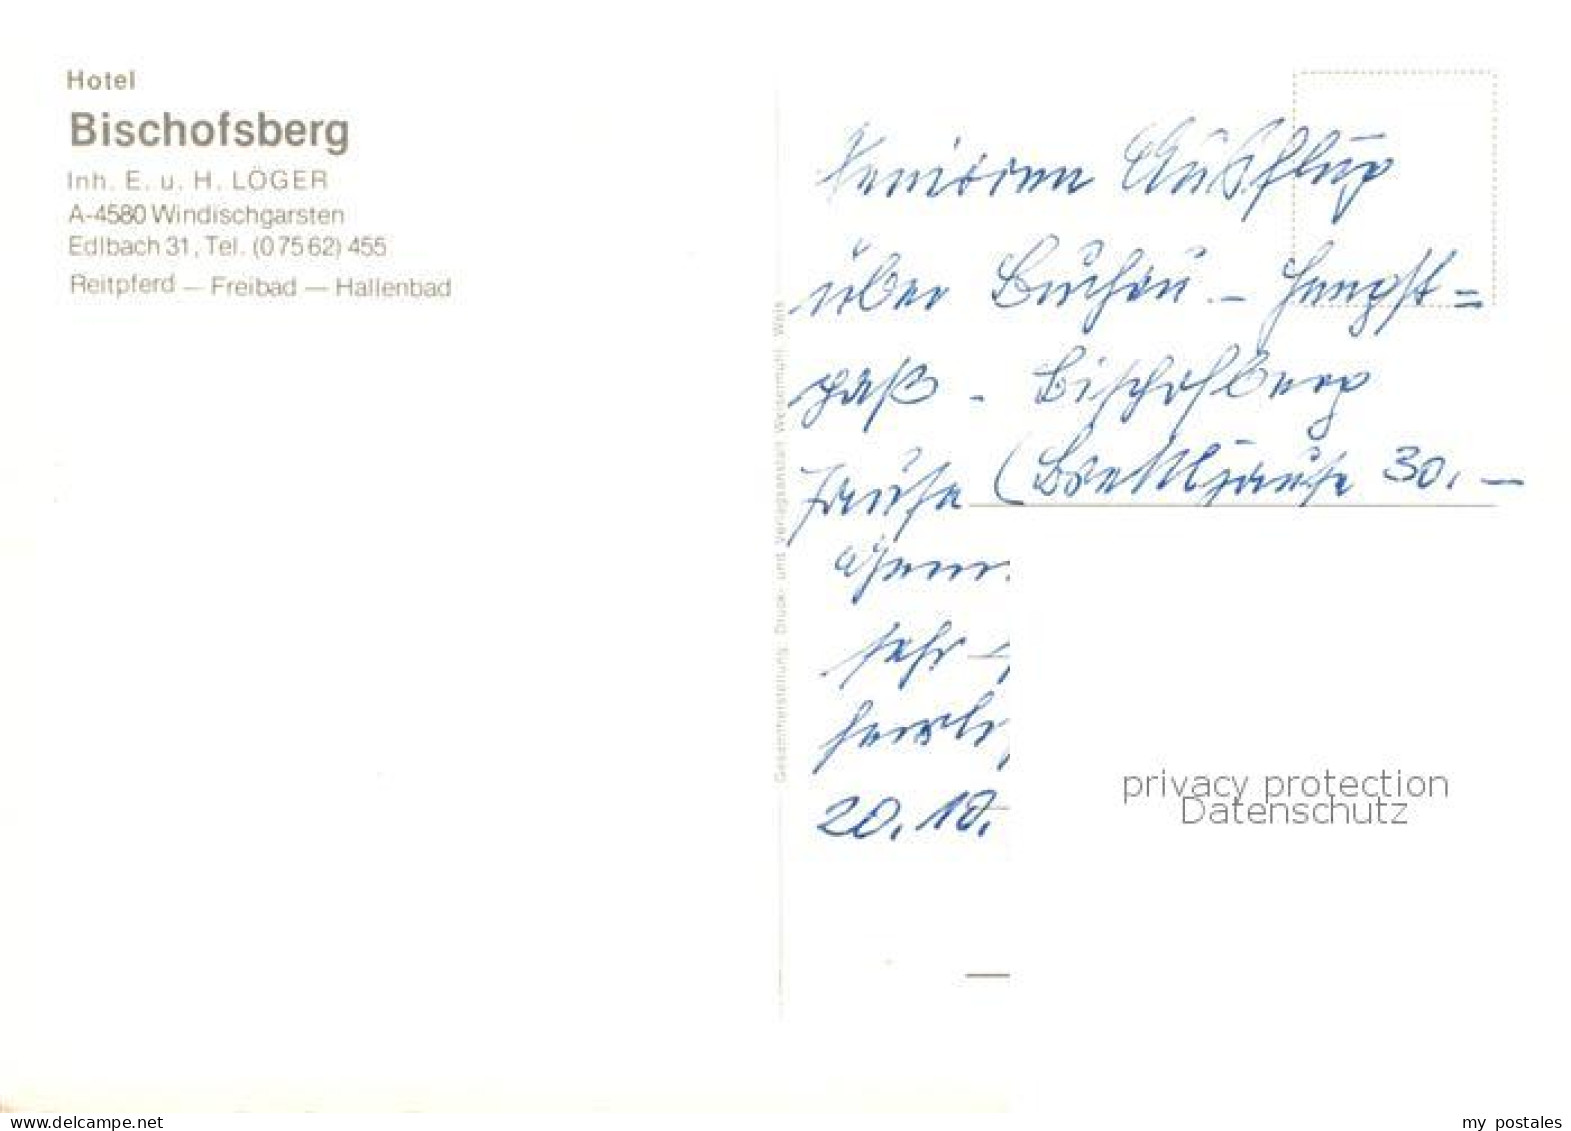 Hotel
Bischofsberg
Inh. E. u. H. LÖGER
A-4580 Windischgarsten
Edlbach 31, Tel. (0 75 62) 455
Reitpferd — Freibad — Hallenbad
Gesamtherstellung: Druck- und Verlagsanstalt Welsermühl, Wels
Senioren Ausflug
über Buchau - Hengst=
paß - Bischofsberg
Jause (Brettljause 30.-
sehr
herrli
20. 10.
privacy protection
Datenschutz
www.delcampe.net
my_postales